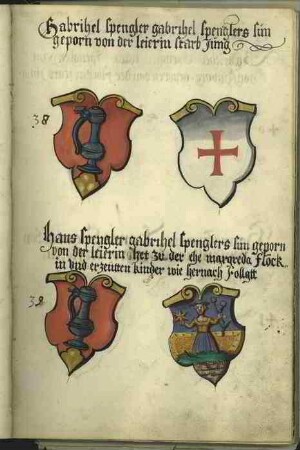 Gabrihel spengler gabrihel spenglers sun
geporn von der leierin starb Jung
38
Hans spengler gabrihel spenglers sun geporn
von der leierin het zu der ehe margreda Flock
in vnd erzeutten kinder wie hernach follgtt
39